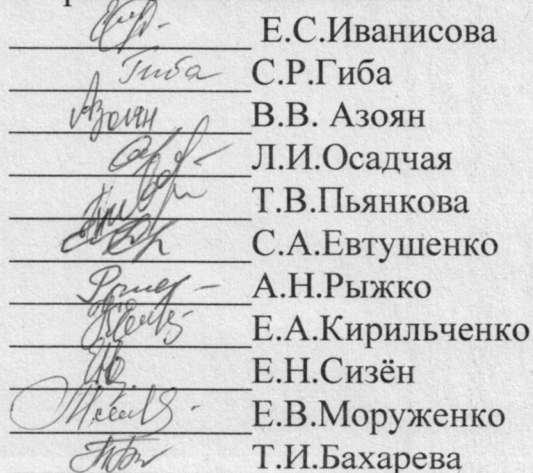 Е.С.Иванисова
Гиба С.Р.Гиба
Азоян В.В. Азоян
Л.И.Осадчая
Т.В.Пьянкова
С.А.Евтушенко
А.Н.Рыжко
Е.А.Кирильченко
Е.Н.Сизён
Е.В.Моруженко
Т.И.Бахарева